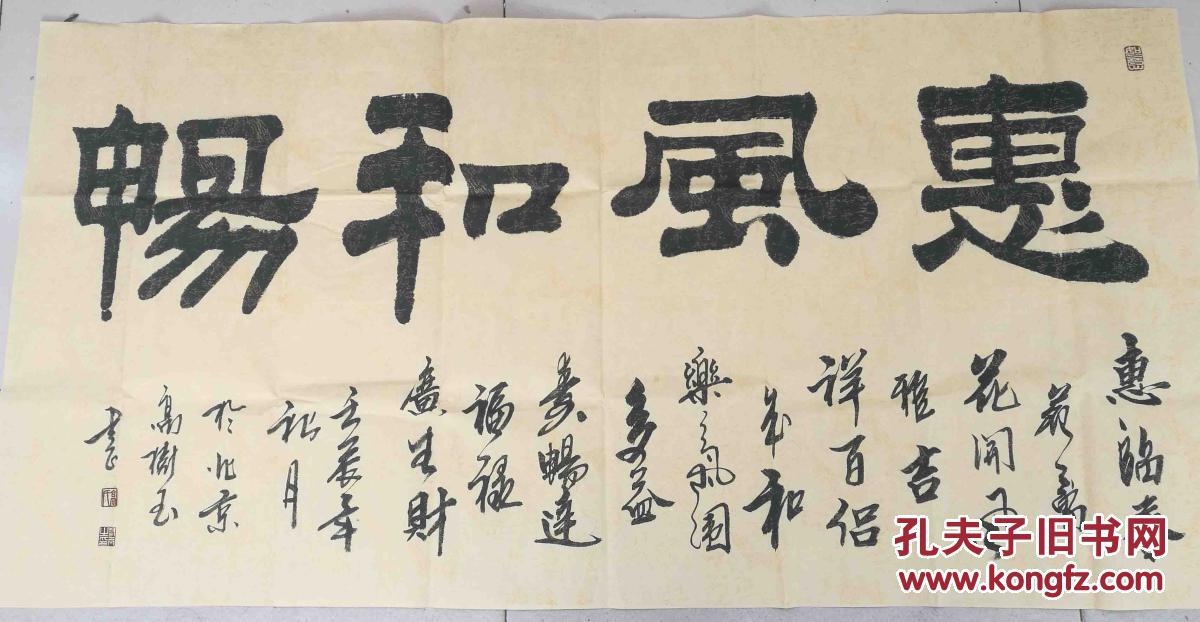 惠風和暢
惠臨春
花開
雅吉
祥百侣
年和
樂氣围
多益
壽暢達
福禄
廣生財
壬辰年
秋月
於北京
高樹玉
書
孔夫子旧书网
www.kongfz.com